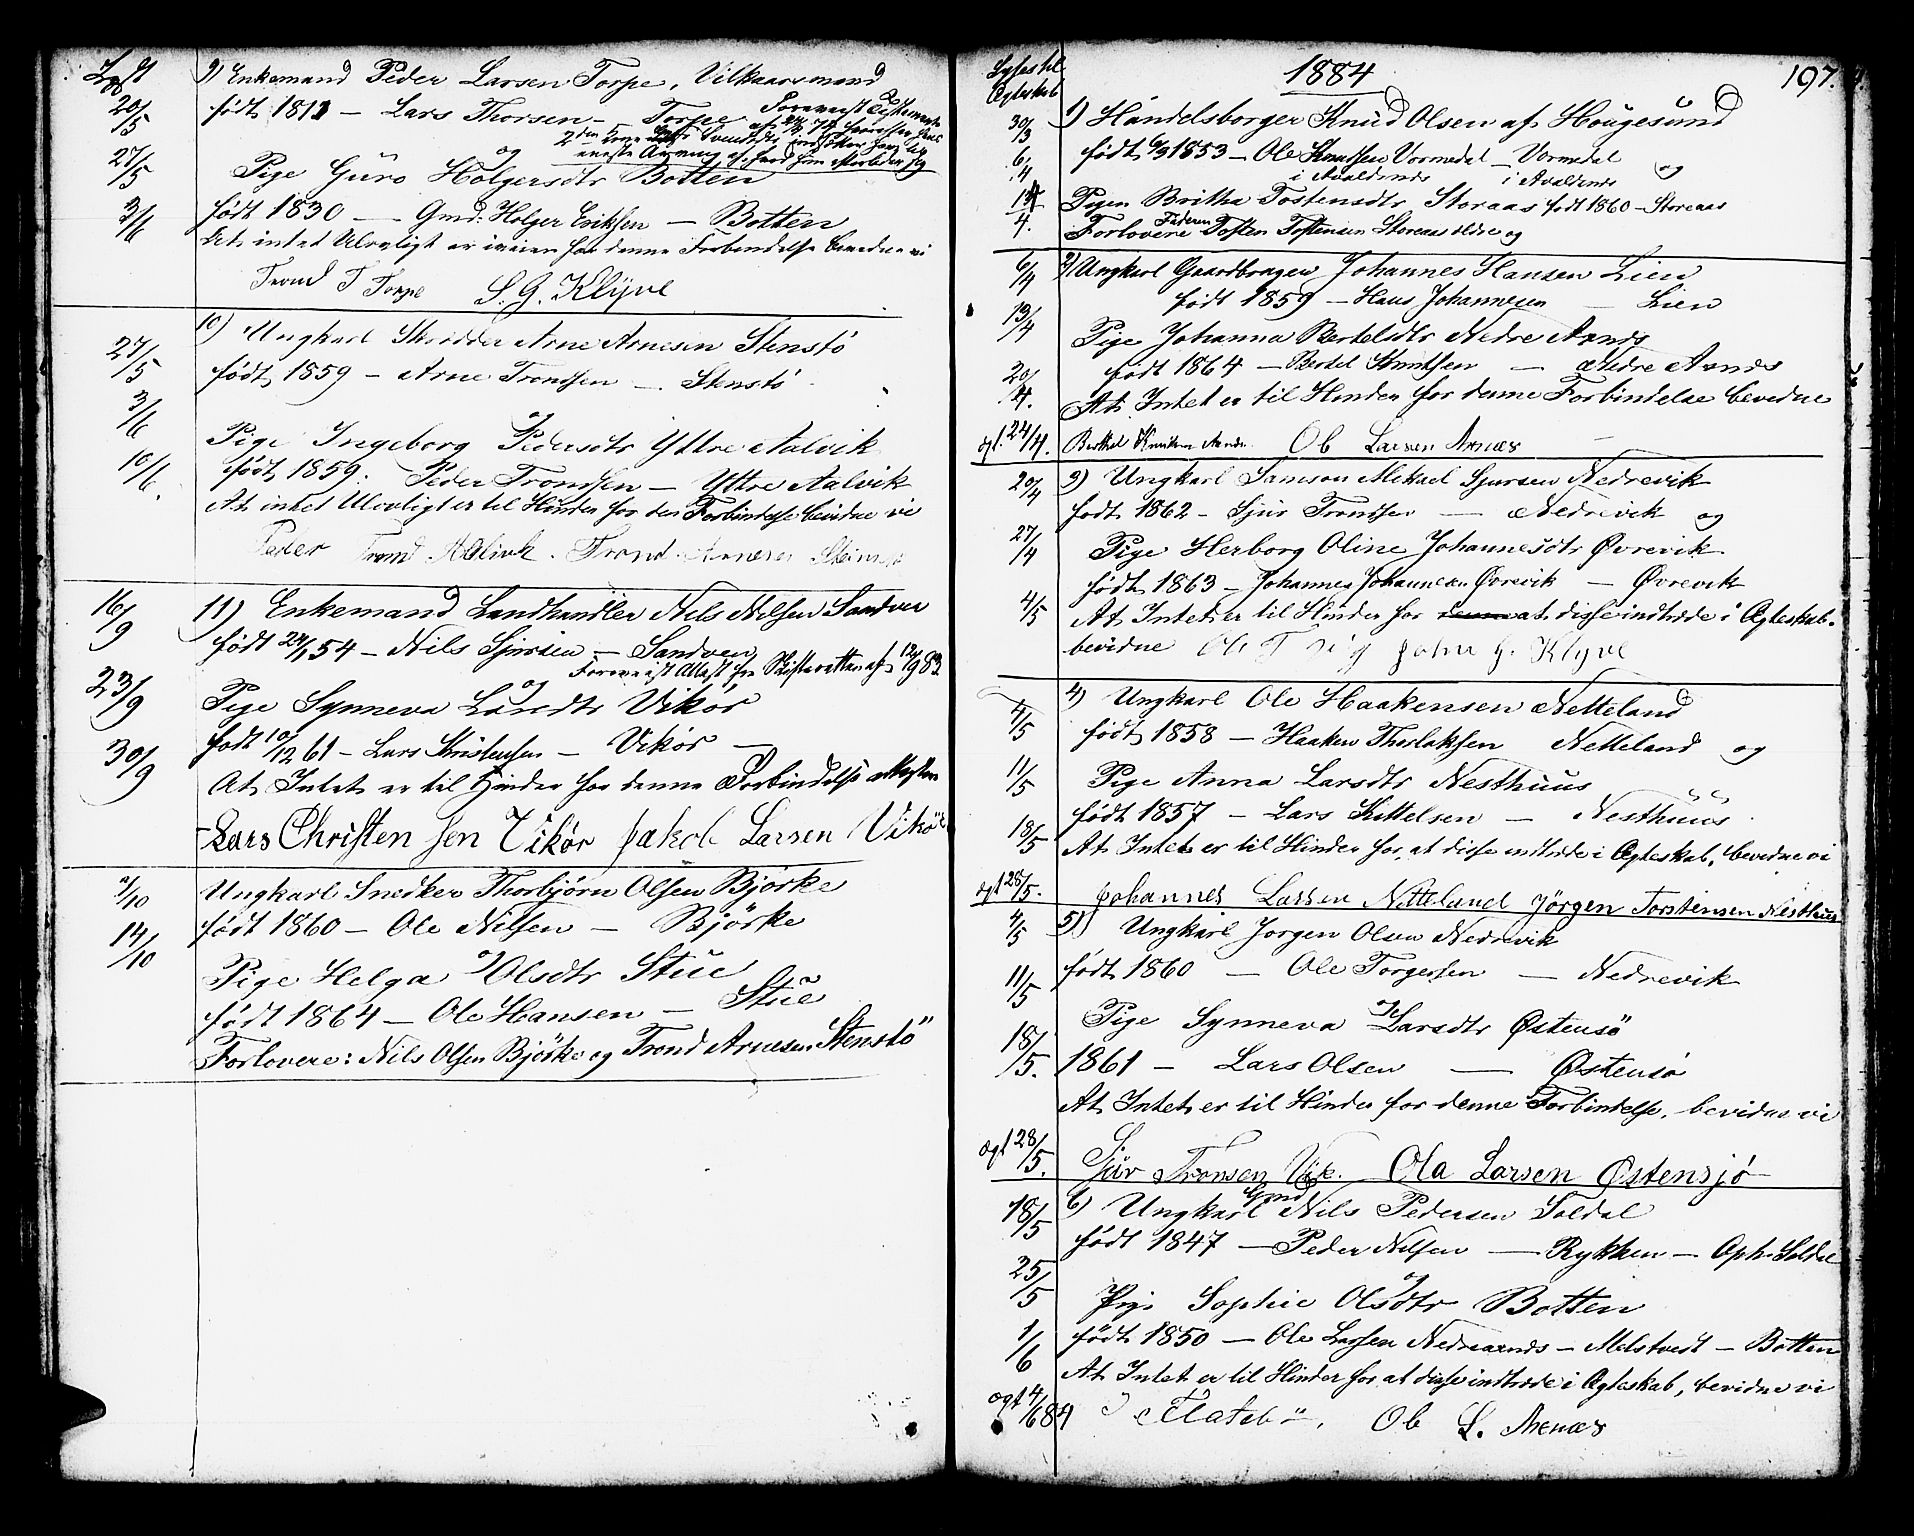 20/5
27/5
3/6
9) Enkemand Peder Larsen Torpe, Vilkaarsmand
født 1811 – Lars Thorsen – Torpe
og
Pige Guro Holgersdtr Botten
født 1830 — Gmd: Holger Eriksen – Botten
At intet Ulovligt er i veien for denne Forbindelse bevidne vi
Trond T Torpe S. G. Klyve
27/5
3/6
10/6.
10) Ungkarl Skrædder Arne Arnesen Stenstö
født 1859 – Arne Tronssen – Stenstö
og
Pige Ingeborg Pedersdtr Yttre Aalvik
født 1859. Peder Tronssen – Yttre Aalvik
At intet Ulovligt er til Hinder for den Forbindelse bevidne vi
Peder Trond Aalivk. Trond Arnesen
16/9
23/9
30/9
11) Enkemand Landhandler Nils Nilsen Sandven
født 24/1 54 – Nils Sjursen – Sandven
Forevist Attest fra Skifteretten af 12/9 83.
og
Pige Synneva Larsdtr Vikör
født 10/12 61 – Lars Kristensen – Vikör –
At Intet er til Hinder for denne Forbindelse
Lars Christen sen Vikør Jakob Larsen Vikör
7/10
14/10
Ungkarl Snedker Thorbjörn Olsen Björke
født 1860 – Ole Nilsen – Björke
og
Pige Helga Olsdtr Stue
født 1864 – Ole Hansen – Stue
Forlovere: Nils Olsen Björke og Trond Arnesen Stenstö
Lyses til
Ægteskab
1884
197.
30/3
6/4
13/4.
1) Handelsborger Knud Olsen af Hougesund
født 6/3 1853 – Ole Knutsen Vormedal – Vormedal og
i Avaldsnæs i Avaldsnæs
Pigen Britha Tostensdtr Storaas født 1860 – Storaas
Forlovere Faderen Tosten Tostensen Storaas ældre og
6/4
13/4
20/4.
ægt. 24/4.
2) Ungkarl Gaardbruger Johannes Hansen Lien
født 1859 – Hans Johannesen – Lien
Pige Johanna Bertelsdtr Nedre Aænds
født 1864 – Bertel Knutsen – Nedre Aænds
At Intet er til Hinder for denne Forbindelse bevidne
Berthel Knutsen Ob Larsen Arnæs
20/4
27/4
4/5
3) Ungkarl Samson Mikael Sjursen Nedrevik
født 1862 – Sjur Tronssen — Nedrevik og
Pige Herborg Oline Johannesdtr Øvrevik
født 1863 – Johannes Johannesen Øvrevik – Øvrevik
At Intet er til Hinder for denne at disse indtræde i Ægteskab.
bevidne John G. Klyve
4/5
11/5
18/5
ægt 28/5.
4) Ungkarl Ole Haakensen Netteland
født 1858 – Haaken Thorlaksen Netteland og
Pige Anna Larsdtr Nesthuus
født 1857 – Lars Kittelsen – Nesthuus
At Intet er til Hinder for, at disse indtræde i Ægteskab, bevidne vi
Johannes Larsen Netteland Jörgen Torstensen Nesthuus
4/5
11/5
18/5.
ægt 28/5.
5) Ungkarl Jörgen Olsen Nedrevik
født 1860 — Ole Torgersen – Nedrevik
og
Pige Synneva Larsdtr Østensö
1861 – Lars Olsen — Østensö
At Intet er til Hinder for denne Forbindelse, bevidne vi
Sjur Tronsen Vik. Ola Larsen Østensjö
18/5
25/5
1/6
ægt 4/6 84
6) Ungkarl Gmd Nils Pedersen Soldal
født 1847 – Peder Nilsen – Rykken – Oph. Soldal
og
Pige Sophie Olsdtr Botten
født 1850 – Ole Larsen Nedreaænds – Melstvedt – Botten
At Intet er til Hinder for at disse indtræde i Ægteskab, bevidne vi
Flatebö, Ob L. Arnæs